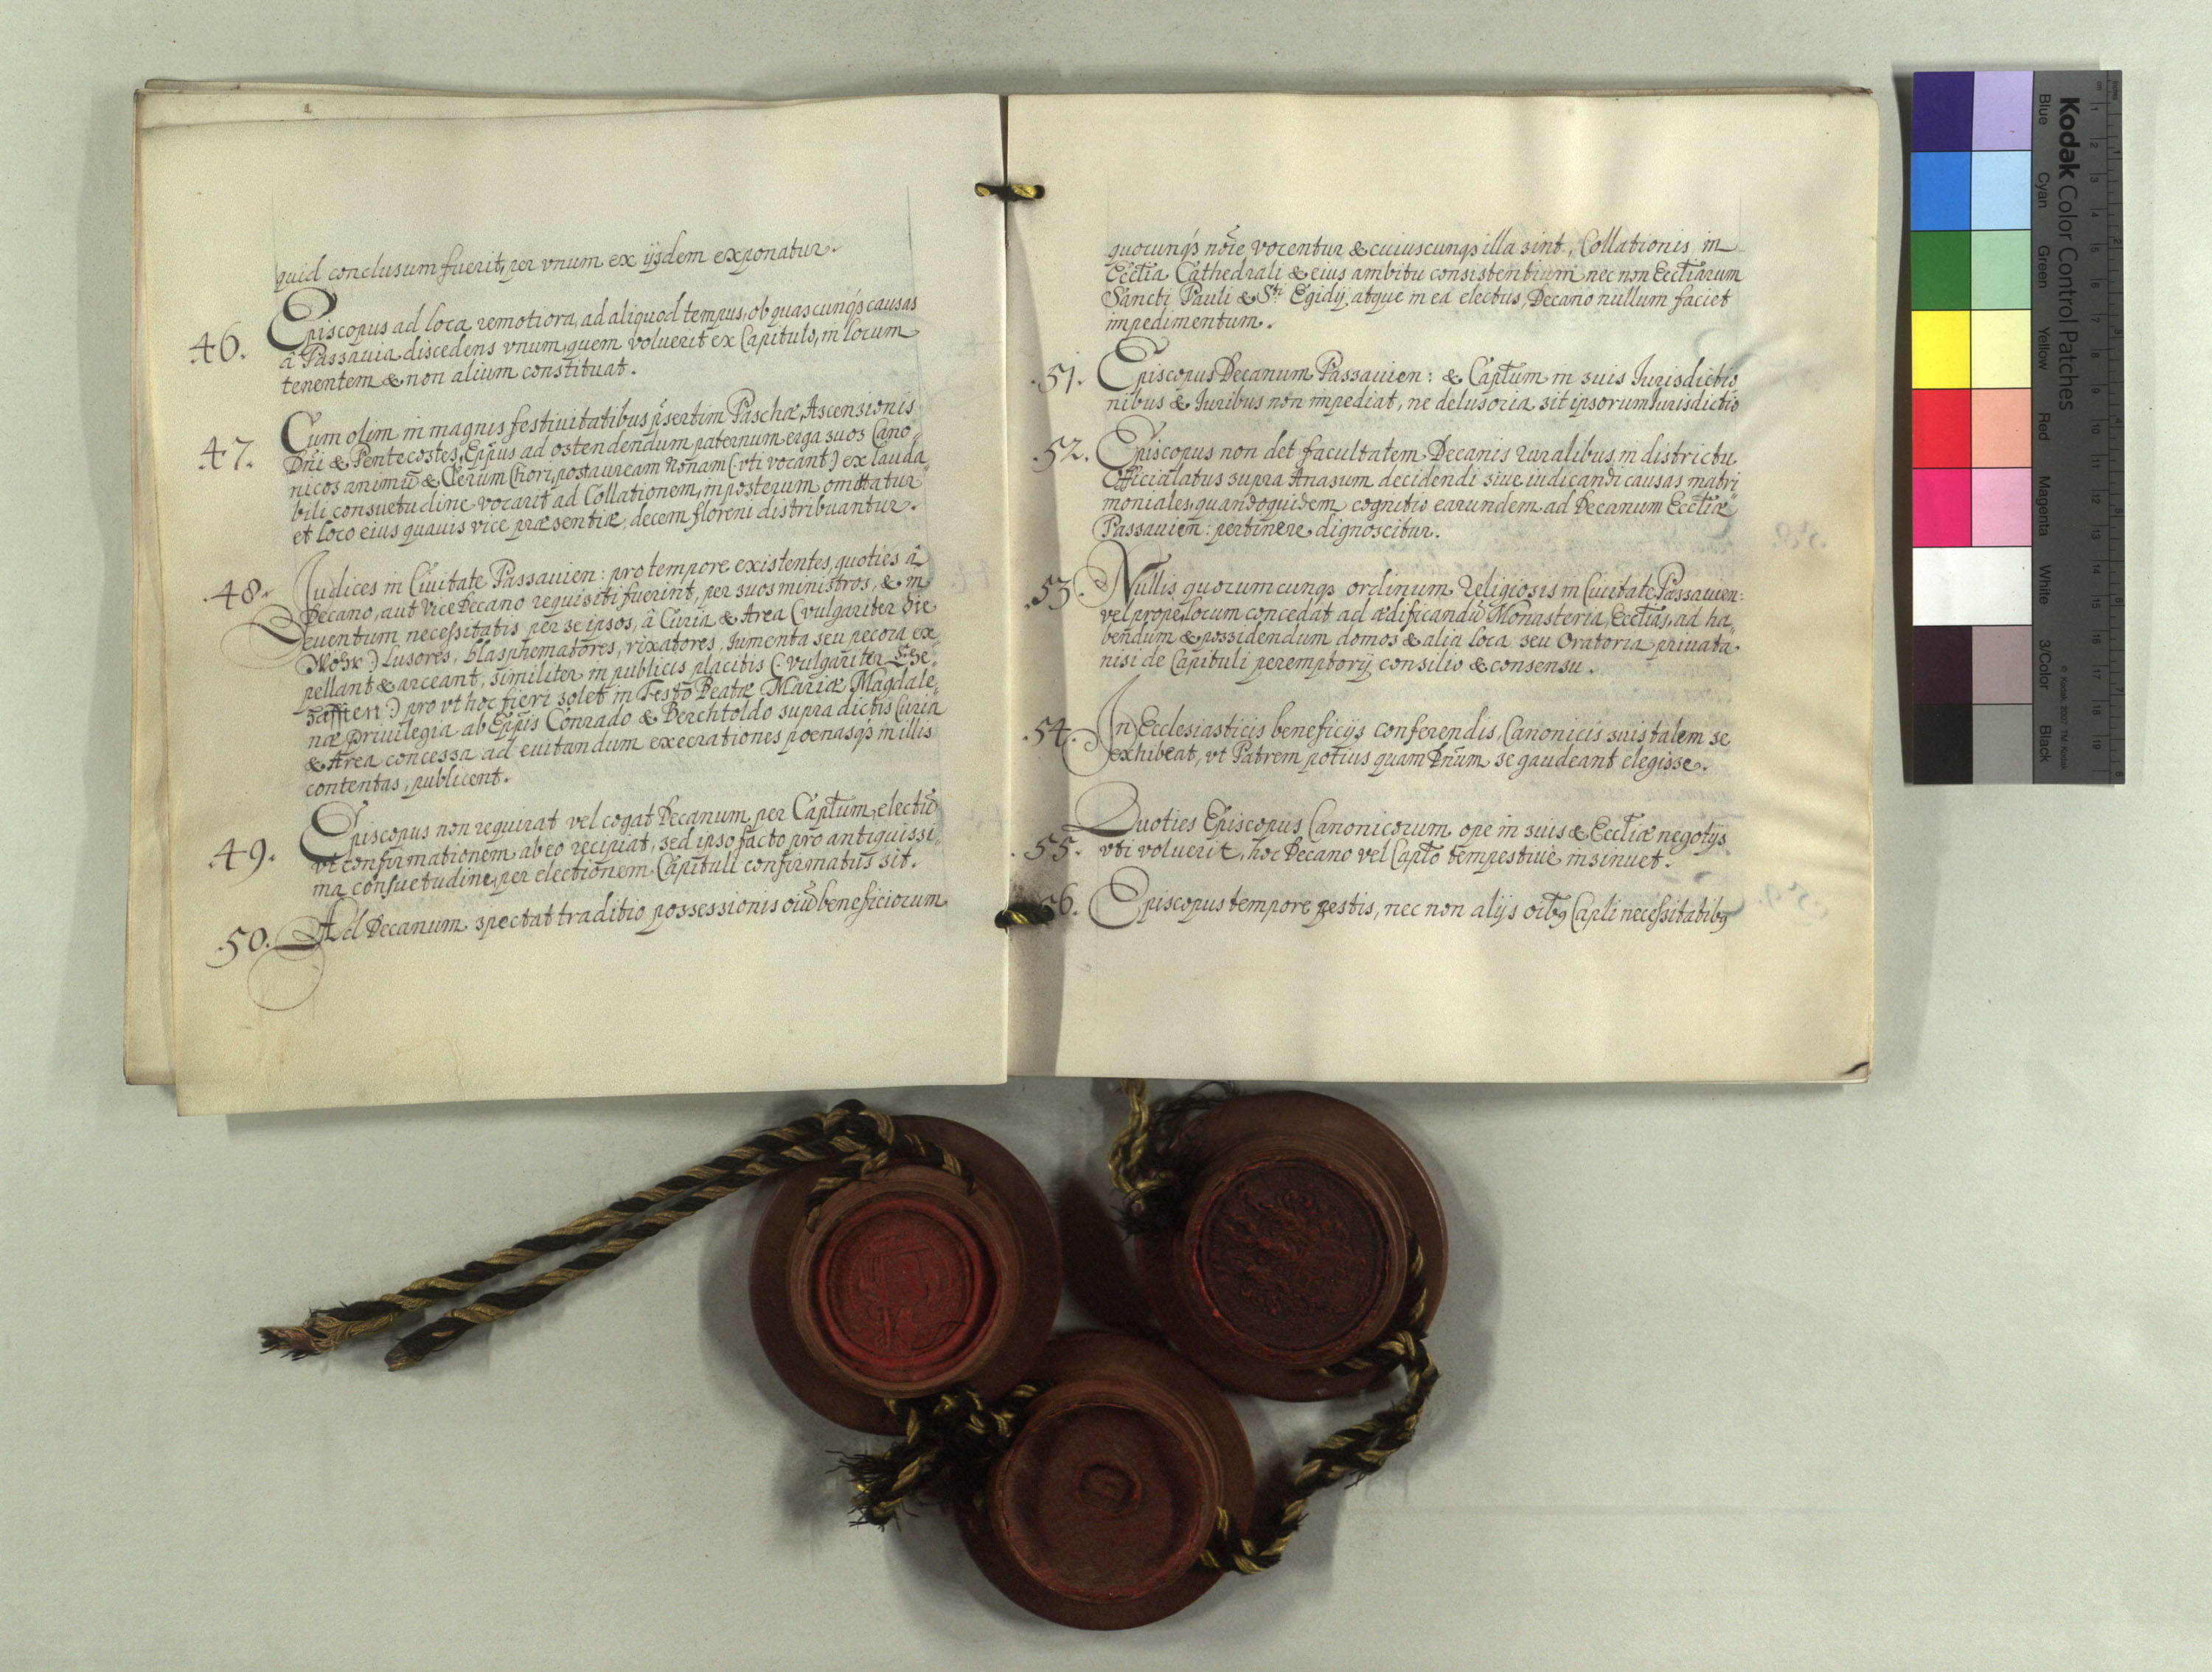 quid conclusum fuerit, per vnum ex ijsdem exponatur.
46. Episcopus ad loca remotiora, ad aliquod tempus, ob quascunqs causas
â Passauia discedens vnum, quem voluerit ex Capitulo, in locum
tenentem & non alium constituat.
47. Cum olim in magnis festiuitatibus psertim Paschæ, Ascensionis
Dni & Pentecostes, Eppus ad ostendendum paternum erga suos Cano
nicos animū & Clerum Chori, post auream Nonam (: vti vocant) ex lauda
bili consuetudine vocarit ad Collationem, in posterum omittatur
et loco eius quauis vice præsentiæ, decem floreni distribuantur.
48. Judices in Ciuitate Passauien: pro tempore existentes, quoties â
Decano, aut Vice Decano requisiti fuerint, per suos ministros, & in
euentum necessitatis per se ipsos, â Curia & Area (vulgariter die
lusores, blasphematores, rixatores, Iumenta seu pecora ex
pellant & arceant, similiter in publicis placitis (: vulgariter Ehe
hafften) pro vt hoc fieri solet in Festo Beatæ Mariæ Magdale
næ Priuilegia ab Eppis Conrado & Berchtoldo supradictis Curia
& Area concessa ad euitandum execrationes poenasqs in illis
contentas, publicent.
49. Episcopus non requirat vel cogat Decanum per Captum electū
vt confirmationem ab eo recipiat, sed ipso facto pro antiquissi
ma consuetudine, per electionem Capituli confirmatus sit.
50. Ad Decanum spectat traditio possessionis oiū beneficiorum
quocunqs noie vocentur & cuiuscunqs illa sint, Collationis in
Ecctia Cathedrali & eius ambitu consistentium nec non Ecctiarum
Sancti Pauli & Sti Egidij, atque in ea electus, Decano nullum faciet
impedimentum.
51. Episcopus Decanum Passauien: & Captum in suis Iurisdictio
nibus & Iuribus non impediat, ne delusoria sit ipsorum Iurisdictio
52. Episcopus non det facultatem Decanis ruralibus in districtu
Officialatus supra Anasum decidendi siue iudicandi causas matri
moniales, quandoquidem cognitio earundem ad Decanum Ecctiæ
Passauien: pertinere dignoscitur.
53. Nullis quorumcunqs ordinum Religiosis in Ciuitate Passauien:
vel prope, locum concedat ad ædificandū Monasteria, Ecctias, ad ha
bendum & possidendum domos & alia loca seu Oratoria priuata
nisi de Capituli peremptorij consilio & consensu.
54. In Ecclesiasticis beneficijs conferendis, Canonicis suis talem se
exhibeat, vt Patrem potius quam Dnum se gaudeant elegisse.
55. Quoties Episcopus Canonicorum ope in suis & Ecctiæ negotijs
vti voluerit, hoc Decano vel Capto tempestiue insinuet.
56. Episcopus tempore pestis, nec non alijs oibq Capli necessitatibq
Kodak Color Control Patches
Blue Cyan Green Yellow Red Magenta White 3/Color Black
© Kodak, 2007 TM: Kodak